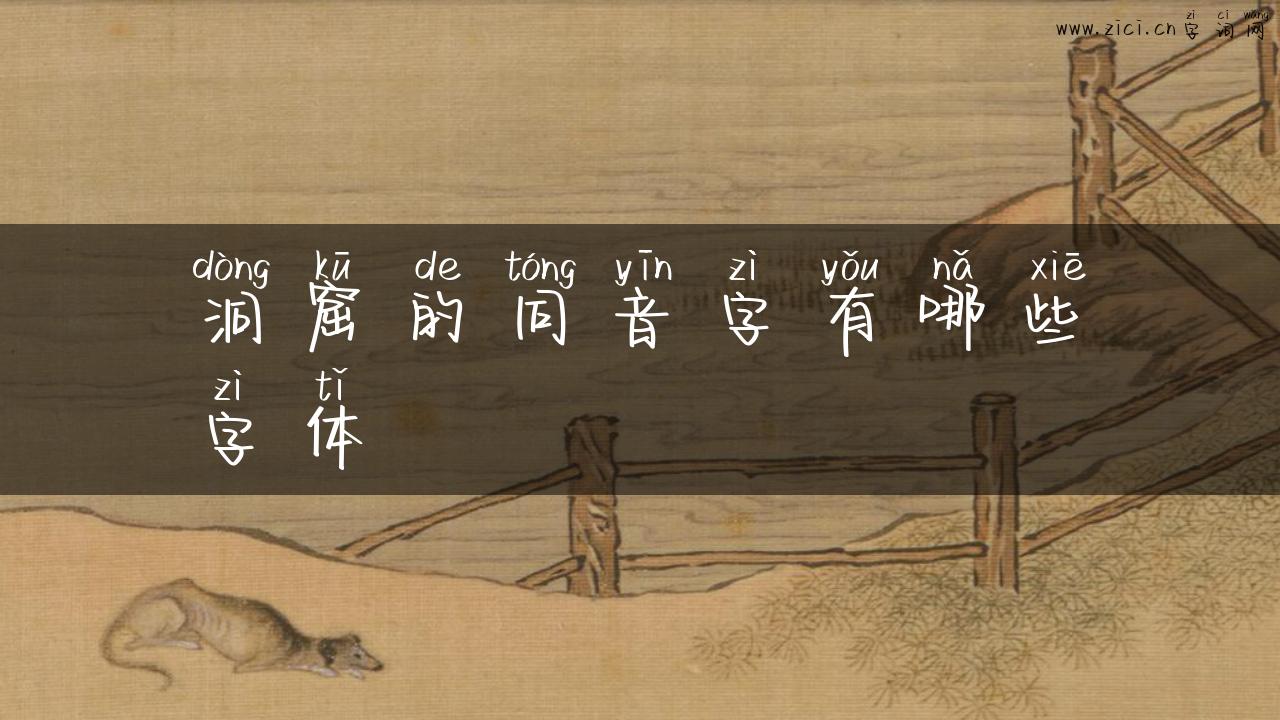 zi ci wang
www.zici.cn字词网
dòng kū de tóng yīn zì yǒu nǎ xiē
洞窟的同音字有哪些
zì tǐ
字体